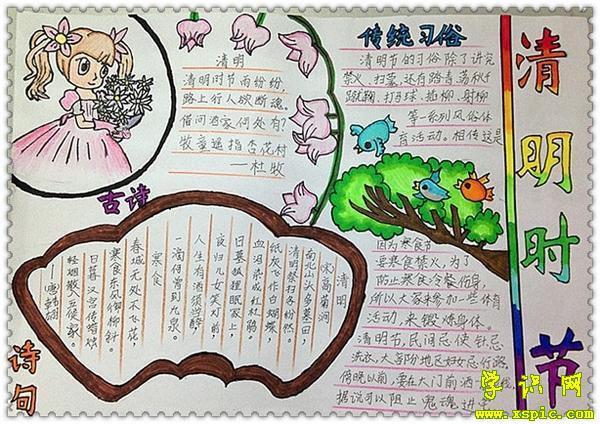 清明
清明时节雨纷纷,
路上行人欲断魂。
借问酒家何处有?
牧童遥指杏花村
—杜牧
传统习俗
清明节的习俗除了讲究
禁火、扫墓,还有踏青、荡秋千
蹴鞠、打马球、插柳、射柳
等一系列风俗体
育活动。相传这是
因为寒食节
要寒食禁火,为了
防止寒食冷餐伤身,
所以大家来参加一些体育
活动,来锻炼身体。
清明节,民间忌使针忌
洗衣,大部份地区妇女忌行路。
傍晚以前,要在大门前洒
据说可以阻止鬼魂进
清明时节
古诗
清明
宋 高菊涧
南北山头多墓田,
清明祭扫各纷然。
纸灰飞作白蝴蝶,
血泪染成红杜鹃。
日暮狐狸眠冢上,
夜归儿女笑灯前,
人生有酒须当醉
一滴何曾到九泉。
寒食
春城无处不飞花,
寒食东风御柳斜。
日暮汉宫传蜡烛
轻烟散入五侯家。
—唐 韩翃
诗句
学识网
www.xspic.com